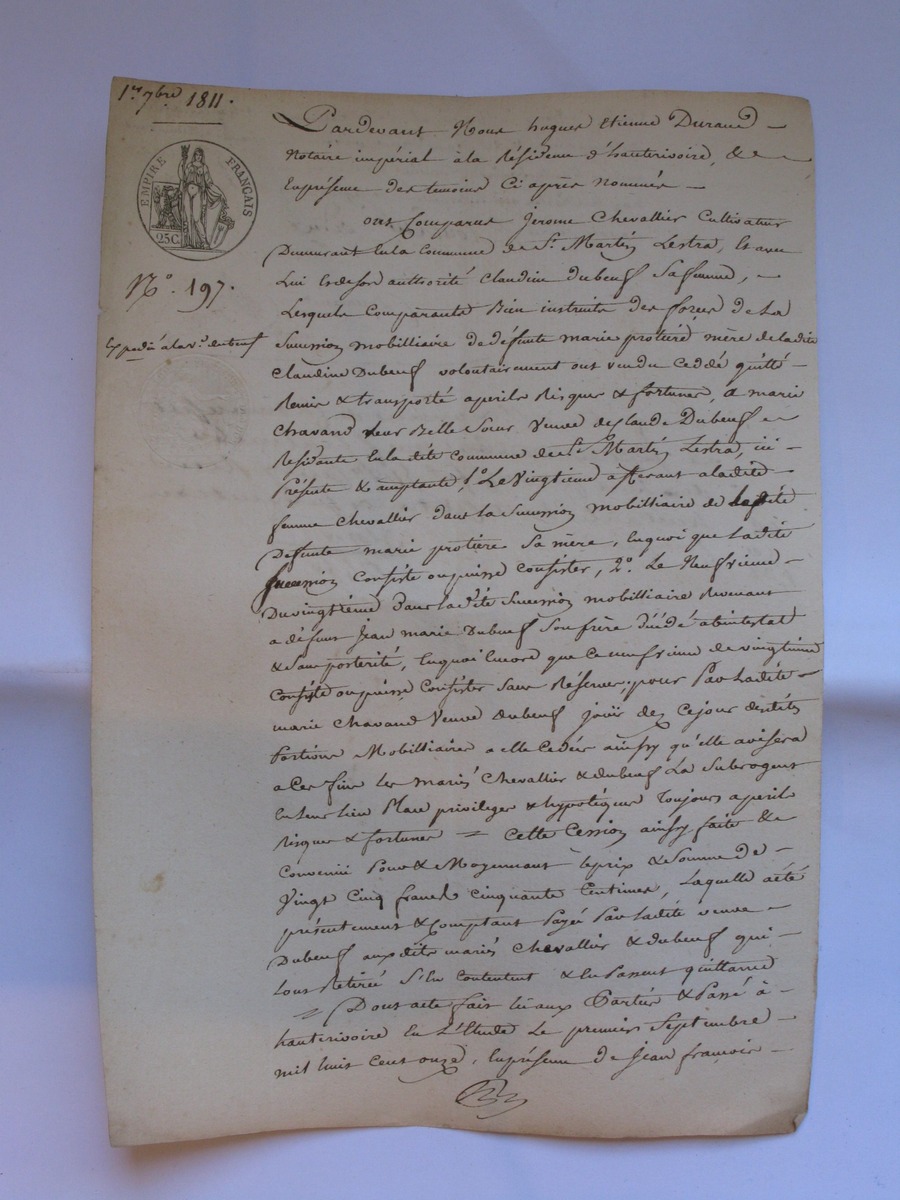 1er 7bre 1811.
EMPIRE FRANÇAIS
25C.
N° 197.
Expedié à la ve. dubeuf
Pardevant Nous hugues Etienne Durand
Notaire impérial à la Résidence d'hauterivoire, & e
Enprésence des temoins Ci après Nommés
ont Comparus Jerome Chevallier Cultivateur
Demeurant En la Commune de St. Martin Lestra, Et avec
Lui & de son authorité Claudine dubeuf Sa femme,
Lesquels Comparants Bien instruits des forces de La
Succession mobilliaire de défunte marie protière mère de ladite
Claudine Dubeuf volontairement ont vendu Ceddé quitté
Remis & transporté a perils Risques & fortunes, a marie
Chavand Leur Belle Sœur Veuve de Claude Dubeuf
Residante En la dite Commune de St. Martin Lestra, ici
Présente & acceptante, 1°. Le Vingtieme afferant a ladite
femme Chevallier dans la Succession mobilliaire de ladite
Defunte marie protière Sa mère, Enquoi que Ladite
Succession Consiste ou puisse Consister, 2°. Le Neufvieme
Du vingtième dans la dite Succession mobilliaire Revenant
a défunt Jean marie Dubeuf Son frère décédé abintestat
& Sans posterité, Enquoi Encore que Ce neufvieme de vingtieme
Consiste ou puisse Consister Sans Réserves, pour Par Ladite
marie Chavand Veuve dubeuf jouïr dez Cejour desdites
Portions Mobilliaires a elle Cedées ainsy qu'elle avisera
a Ces fins Les mariés Chevallier & dubeuf La Subrogent
En leur Lieu Place privileges & hypotèques Toujours a perils
Risques & fortunes = Cette Cession ainsy faite &
Convenüe Pour & Moyennant le prix & Somme de
Vingt Cinq francs Cinquante Centimes, Laquelle a été
présentement & Comptant Payée Par Ladite veuve
Dubeuf aux dits mariés Chevallier & dubeuf qui
Lont Retirée S'En Contentent & En Passent quittance
= Dont acte fait Lû aux Parties & Passé à
hauterivoire En L'Etude Le premier Septembre
mil huit Cent onze, Enprésence de Jean françois